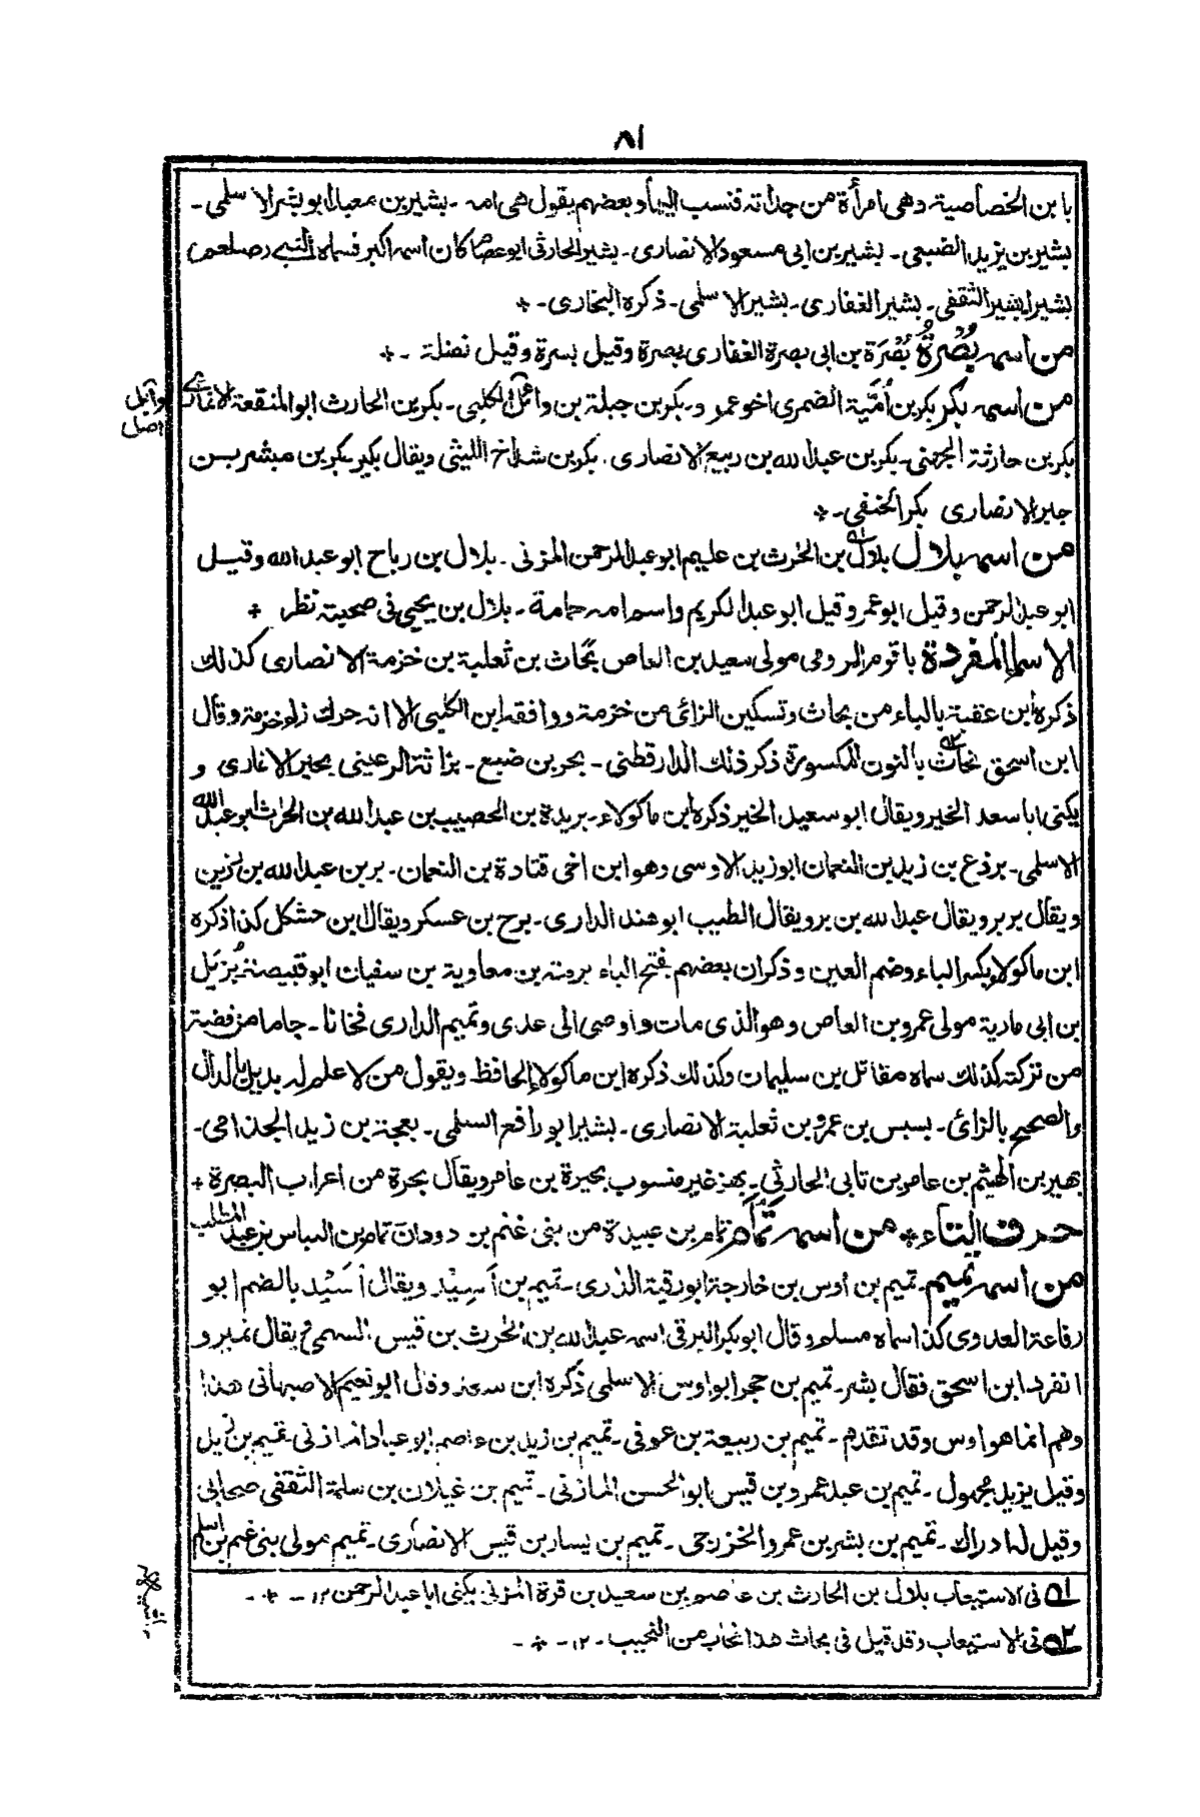 ٨١
بابن الخصاصية وهى امرأة من جداته فنسب اليها وبعضهم يقول هى امه ـ بشير بن معبد ابو بشر الاسلمى ـ
بشير بن يزيد الضبعى ـ بشير بن ابى مسعود الانصارى ـ بشير الحارثى ابو عصام كان اسمه اكبر فسماه النبى (صلعم)
بشيرا بشير الثقفى ـ بشير الغفارى ـ بشير الاسلمى ـ ذكره البخارى ـ *
من اسمه بُصْرَةُ بُصْرَة بن ابى بصرة الغفارى بصرة وقيل بسرة وقيل نضلة ـ *
من اسمه بكر بكر بن أُمَيَّة الضمرى اخو عمرو ـ بكر بن جبلة بن وائل الكلبى ـ بكر بن الحارث ابو المنقعة الانمارى
وآئل اصل
بكر بن حارثة الجهنى ـ بكر بن عبد الله بن ربيع الانصارى ـ بكر بن شداخ الليثى ويقال بكير بكر بن مبشر بن
جبر الانصارى بكر الحنفى ـ *
من اسمه بلال بلال بن الحرث بن عليم ابو عبد الرحمن المزنى ـ بلال بن رباح ابو عبد الله وقيل
ابو عبد الرحمن وقيل ابو عمرو وقيل ابو عبد الكريم واسم امه حمامة ـ بلال بن يحيى فى صحبته نظر *
الاسماء المفردة باقوم الرومى مولى سعيد بن العاص بحّاث بن ثعلبة بن خزمة الانصارى كذلك
ذكره ابن عقبة بالباء من بحاث وتسكين الزائ من خزمة ووافقه ابن الكلبى الا انه حرك زاء خزمة وقال
ابن اسحق نحاث بالنون المكسورة ذكر ذلك الدارقطنى ـ بحر بن ضبع ـ بن اثة الرعينى بحير الانمارى و
يكنى ابا سعد الخير ويقال ابو سعيد الخير ذكره ابن ماكولاء ـ بريدة بن الحصيب بن عبد الله بن الحرث ابو عبد الله
الاسلمى ـ برذع بن زيد بن النعمان ابو زيد الاوسى وهو ابن اخى قتادة بن النعمان ـ بر بن عبد الله بن رزين
ويقال بربر ويقال عبد الله بن بر ويقال الطيب ابو هند الدارى ـ برح بن عسكر ويقال ابن حشكل كذا ذكره
ابن ماكولا بكسر الباء وضم العين وذكر ان بعضهم بفتح الباء برمنة بن معاوية بن سفيان ابو قبيصة بُزَيل
بن ابى مارية مولى عمرو بن العاص وهو الذى مات واوصى الى عدى وتميم الدارى فخانا ـ جاما من فضة
من تركته كذلك سماه مقاتل بن سليمان وكذلك ذكره ابن ماكولا الحافظ ويقول من لا علم له بديل بالدال
والصحيح بالزائ ـ بسبس بن عمرو بن ثعلبة الانصارى ـ بشر ابو رافع السلمى ـ بعجة بن زيد الجذامى ـ
بهير بن الهيثم بن عامر بن نابى الحارثى ـ بهز غير منسوب بحيرة بن عامر ويقال بحرة من اعراب البصرة *
حرف التاء * من اسمه تمام تمام بن عبيدة من بنى غنم بن دودان تمام بن العباس بن عبد المطلب
من اسمه تميم ـ تميم بن اوس بن خارجة ابو رقية الدارى ـ تميم بن أَسِيْد ويقال أُسَيْد بالضم ابو
رفاعة العدوى كذا سماه مسلم وقال ابو بكر البرقى اسمه عبد الله بن الحرث بن قيس السهمى يقال نمير و
انفرد ابن اسحق فقال بشر ـ تميم بن حجر ابو اوس الاسلمى ذكره ابن سعد وقال ابو نعيم الاصبهانى هذا
وهم انما هو اوس وقد تقدم ـ تميم بن ربيعة بن عوفى ـ تميم بن زيد بن عاصم ابو عباد المازنى تميم بن زيد
وقيل يزيد مجهول ـ تميم بن عبد عمرو بن قيس ابو الحسن المازنى ـ تميم بن غيلان بن سلمة الثقفى صحابى
وقيل له ادراك ـ تميم بن بشر بن عمرو الخزرجى ـ تميم بن يسار بن قيس الانصارى ـ تميم مولى بنى غنم بن اسلم
ا؎ فى الاستيعاب بلال بن الحارث بن عاصم بن سعيد بن قرة المزنى يكنى ابا عبد الرحمن ١٢ ـ * ـ
٢؎ فى الاستيعاب وقد قيل فى بحاث هذا نحاب من النحيب ـ ١٢ ـ * ـ